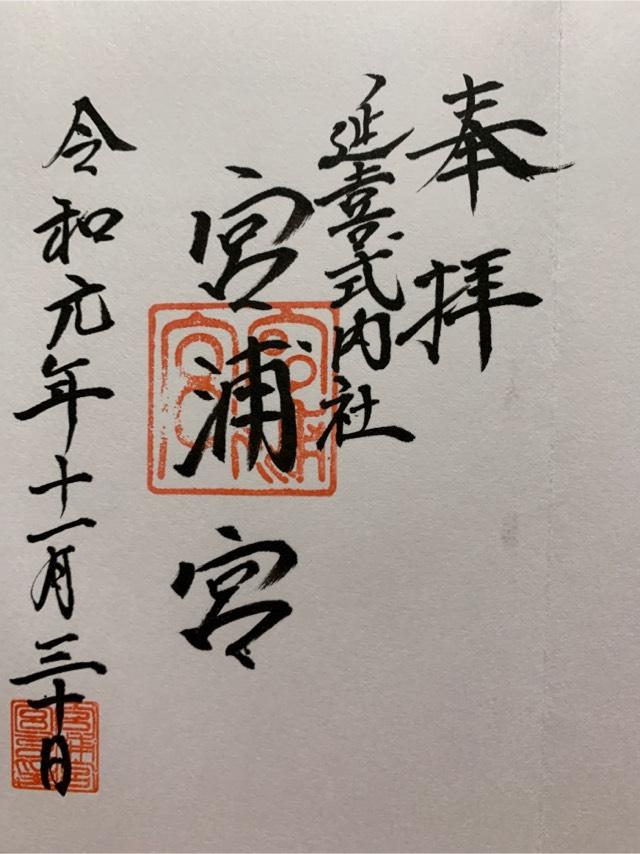 奉拝
延喜式内社
宮浦宮
令和元年十一月三十日